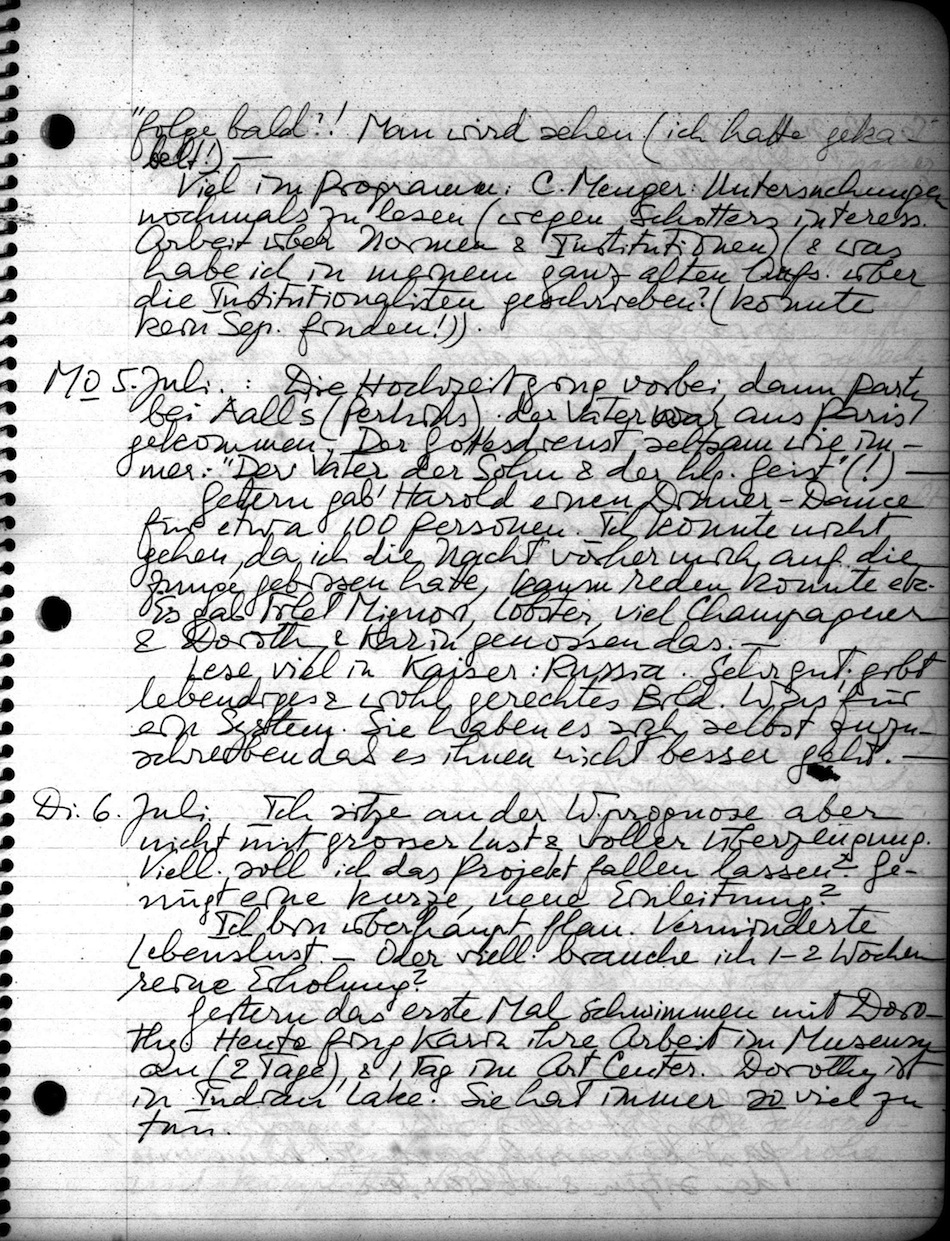 "folge bald"! Man wird sehen (ich hatte geka-
belt!) —
Viel im Programm: C. Menger: Untersuchungen
nochmals zu lesen (wegen Schotters interess.
Arbeit über Normen & Institutionen) (& was
habe ich in meinem ganz alten Aufs. über
die Institutionalisten geschrieben? (konnte
kein Sep. finden!)).
Mo 5. Juli. : Die Hochzeit ging vorbei, dann party
bei Aalls (Perkins). der Vater war aus Paris
gekommen. Der Gottesdienst seltsam wie im-
mer: "Der Vater der Sohn & der hlg. Geist" (!) —
Gestern gab Harold einen Dinner-Dance
für etwa 100 Personen. Ich konnte nicht
gehen, da ich die Nacht vorher mich auf die
Zunge gebissen habe, kaum reden konnte etc.
Es gab Filet Mignon, Lobster, viel Champagner
& Doroth. & Karin genossen das. —
Lese viel in Kaiser: Russia. Sehr gut; gibt
lebendiges & wohl gerechtes Bild. Was für
ein System. Sie haben es sich selbst zuzu-
schreiben das es ihnen nicht besser geht. —
Di. 6. Juli. Ich sitze an der W.prognose aber
nicht mit grosser Lust & voller Überzeugung.
Viell. soll ich das Projekt fallen lassen? Ge-
nügt eine kurze, neue Einleitung?
Ich bin überhaupt flau. Verminderte
Lebenslust. — Oder viell. brauche ich 1-2 Wochen
reine Erholung?
Gestern das erste Mal schwimmen mit Doro-
thy. Heute fing Karin ihre Arbeit im Museum
an (2 Tage), & 1 Tag im Art Center. Dorothy ist
in Indian Lake. Sie hat immer so viel zu
tun.